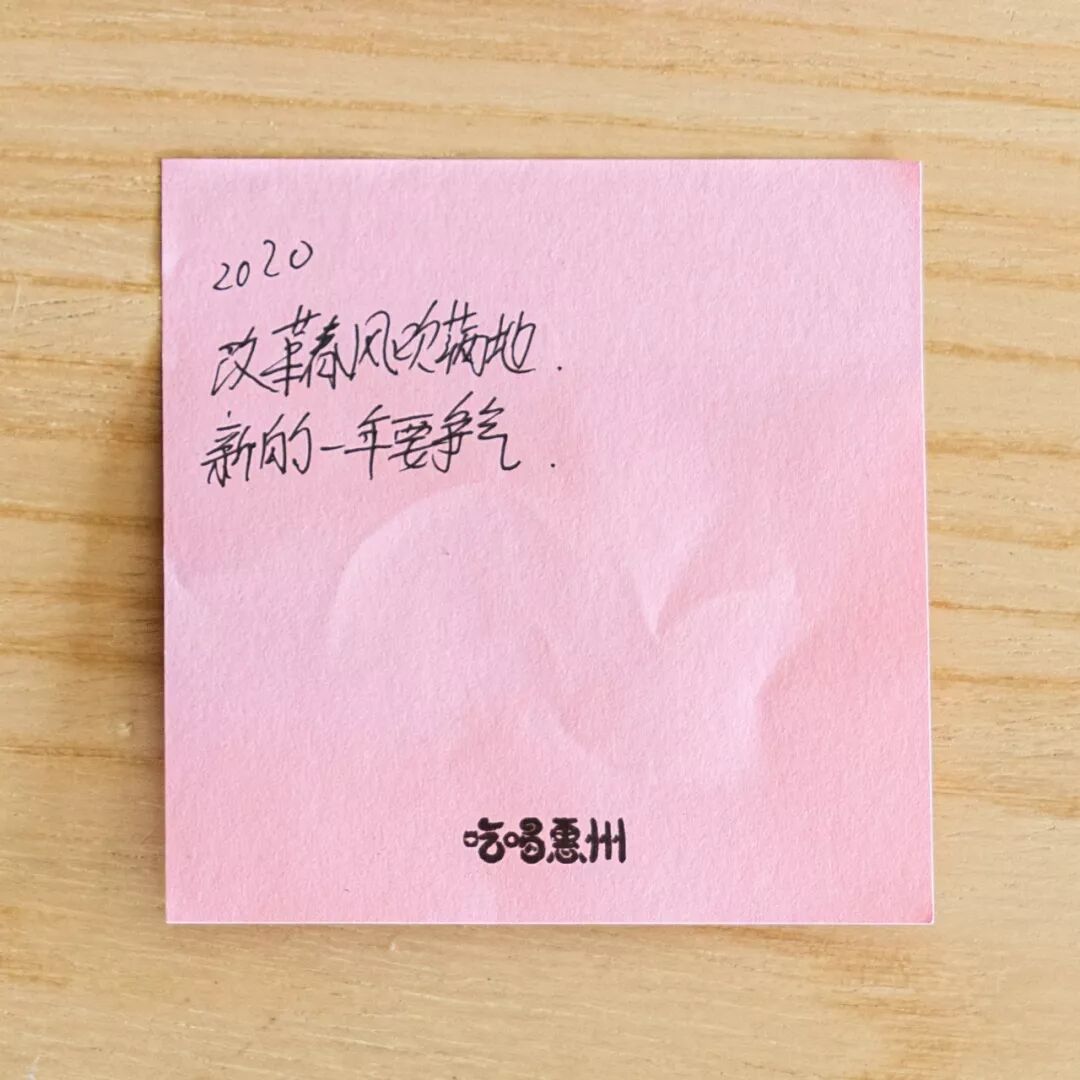 2020
改革春风吹满地.
新的一年要争气.
吃喝惠州